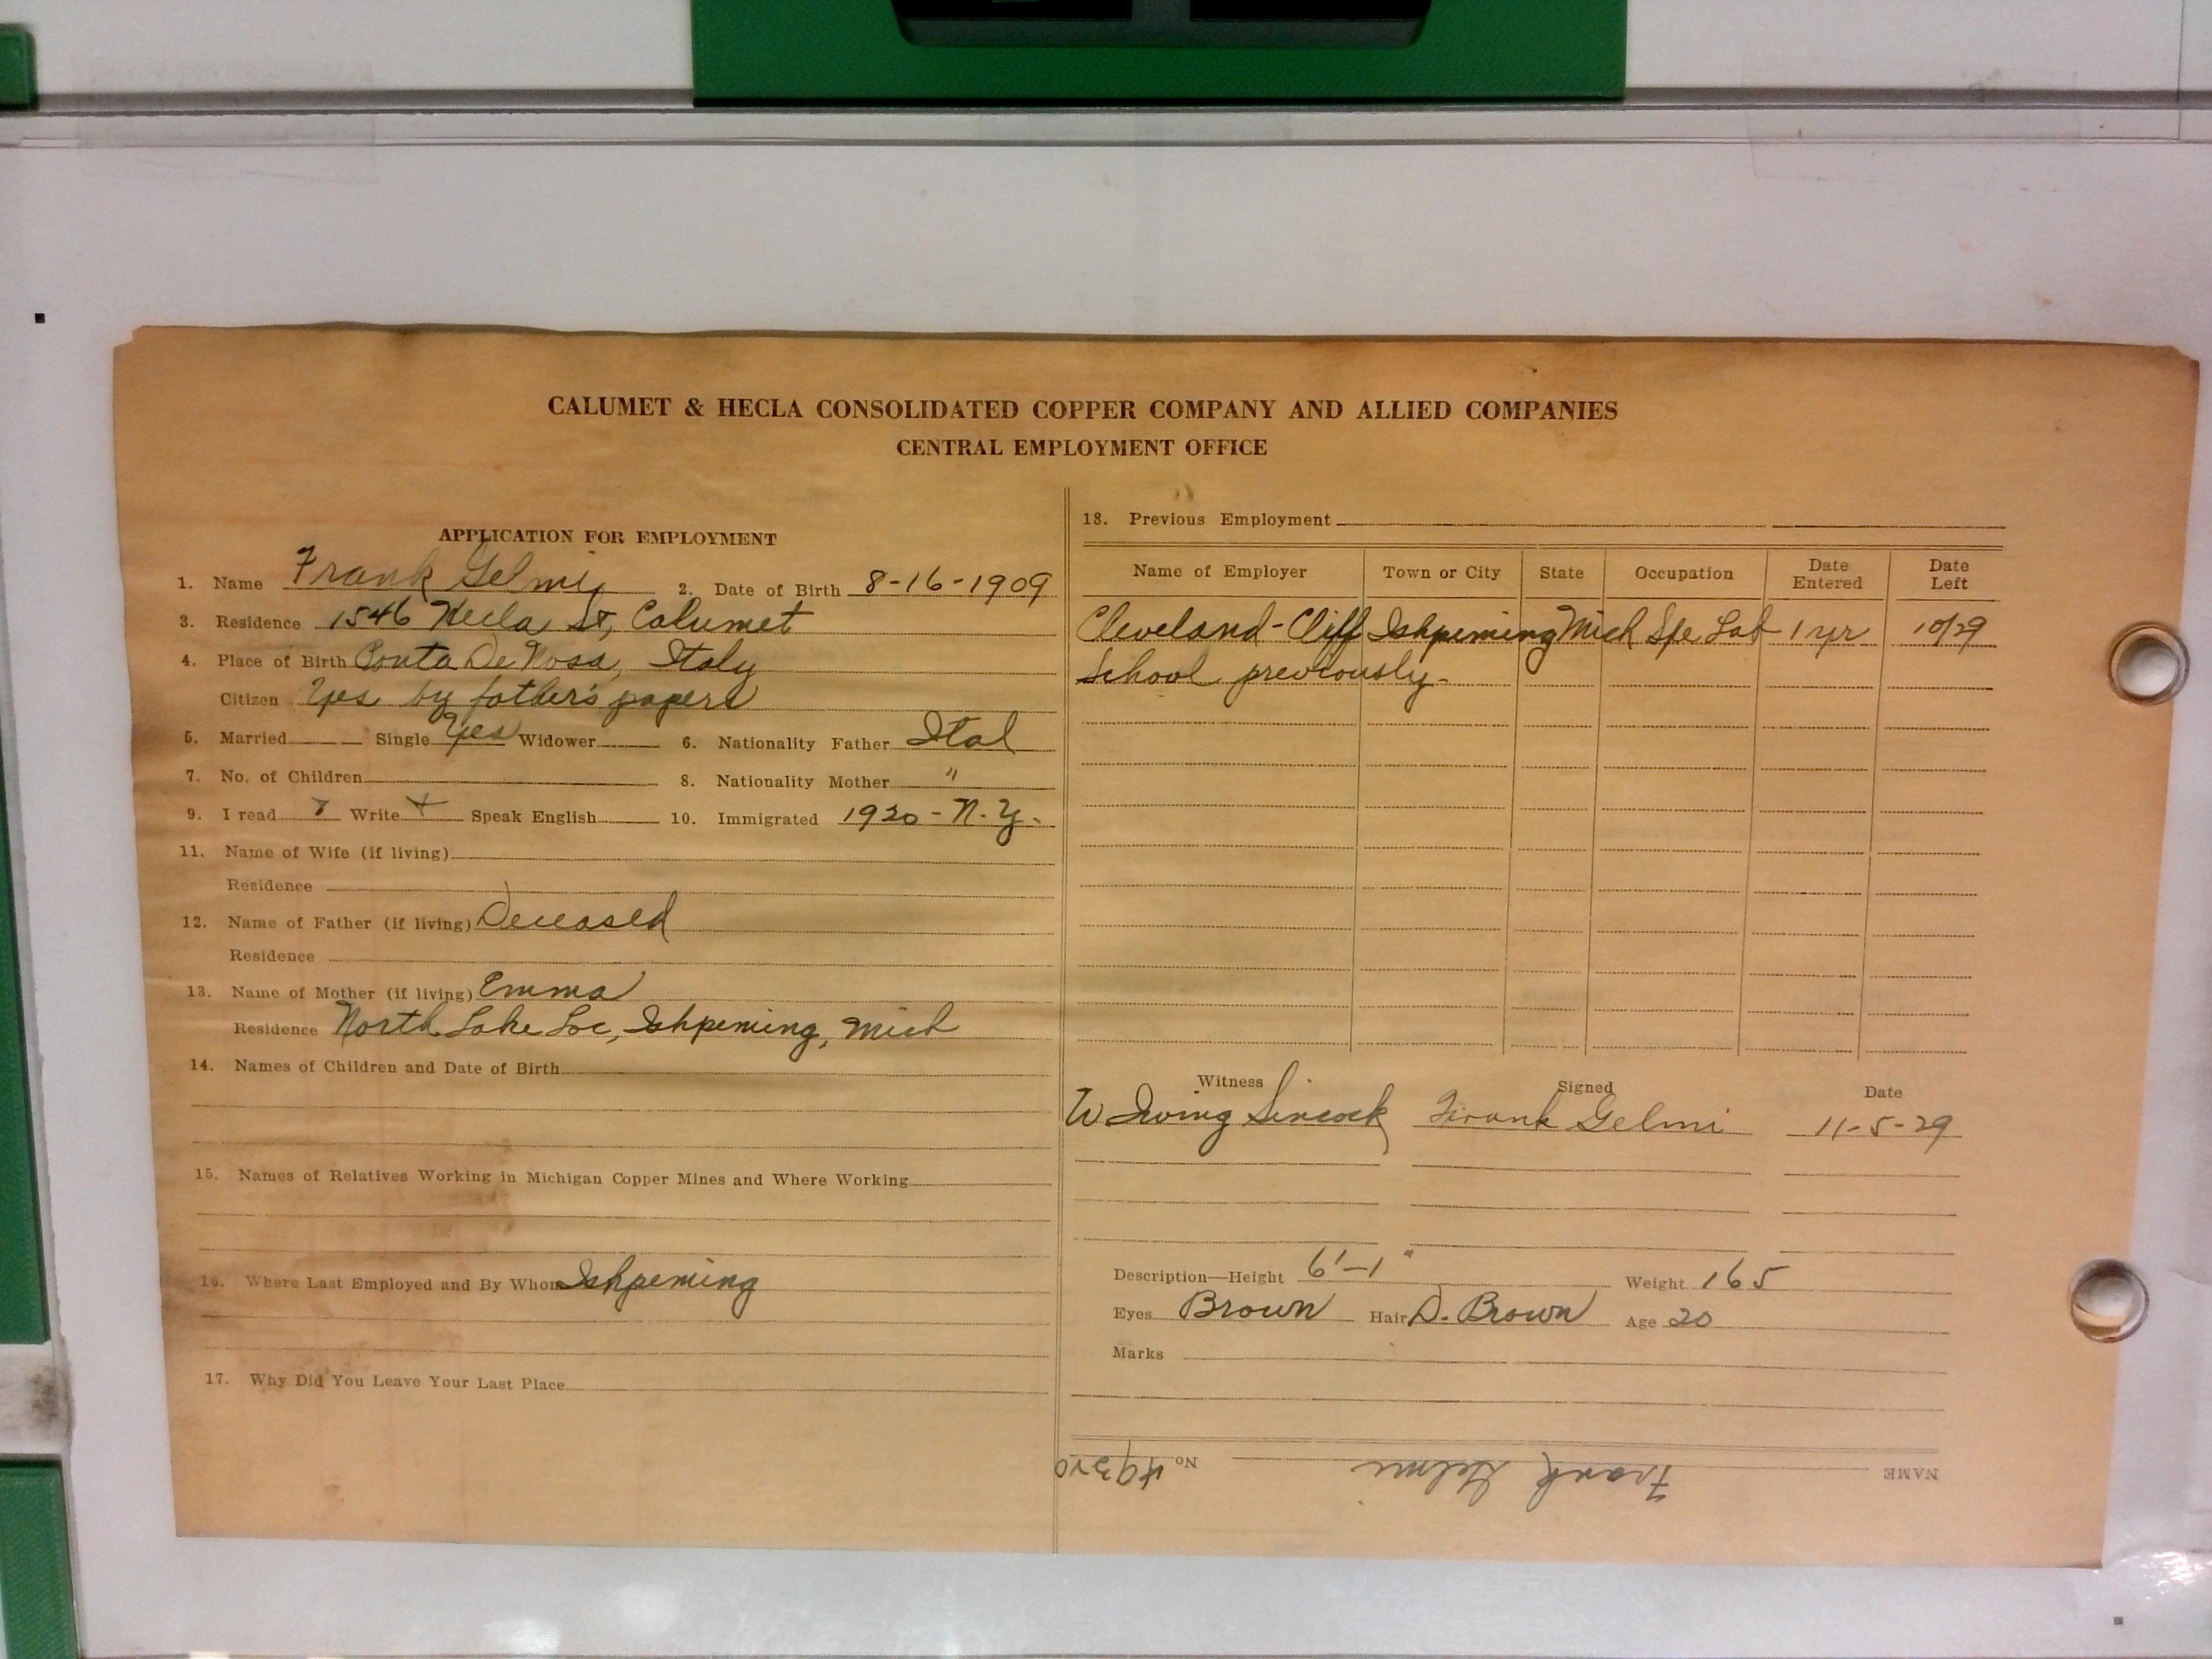 CALUMET & HECLA CONSOLIDATED COPPER COMPANY AND ALLIED COMPANIES
CENTRAL EMPLOYMENT OFFICE
APPLICATION FOR EMPLOYMENT
1. Name Frank Gelmi 2. Date of Birth 8-16-1909
3. Residence 1546 Hecla St, Calumet
4. Place of Birth Ponta De Nosa, Italy
Citizen Yes by father's papers
5. Married Single Yes Widower 6. Nationality Father Ital
7. No. of Children 8. Nationality Mother "
9. I read Write Speak English 10. Immigrated 1920 - N.Y.
11. Name of Wife (if living)
Residence
12. Name of Father (if living) Deceased
Residence
13. Name of Mother (if living) Emma
Residence North Lake Loc, Ishpeming, Mich
14. Names of Children and Date of Birth
15. Names of Relatives Working in Michigan Copper Mines and Where Working
16. Where Last Employed and By Whom Ishpeming
17. Why Did You Leave Your Last Place
18. Previous Employment
Name of Employer Town or City State Occupation Date Entered Date Left
Cleveland-Cliff Ishpeming Mich Spe Lab 1 yr 10/29
School previously-
Witness Signed Date
W Irving Sincock Frank Gelmi 11-5-29
Description—Height 6'-1" Weight 165
Eyes Brown Hair D. Brown Age 20
Marks
NAME Frank Gelmi No.